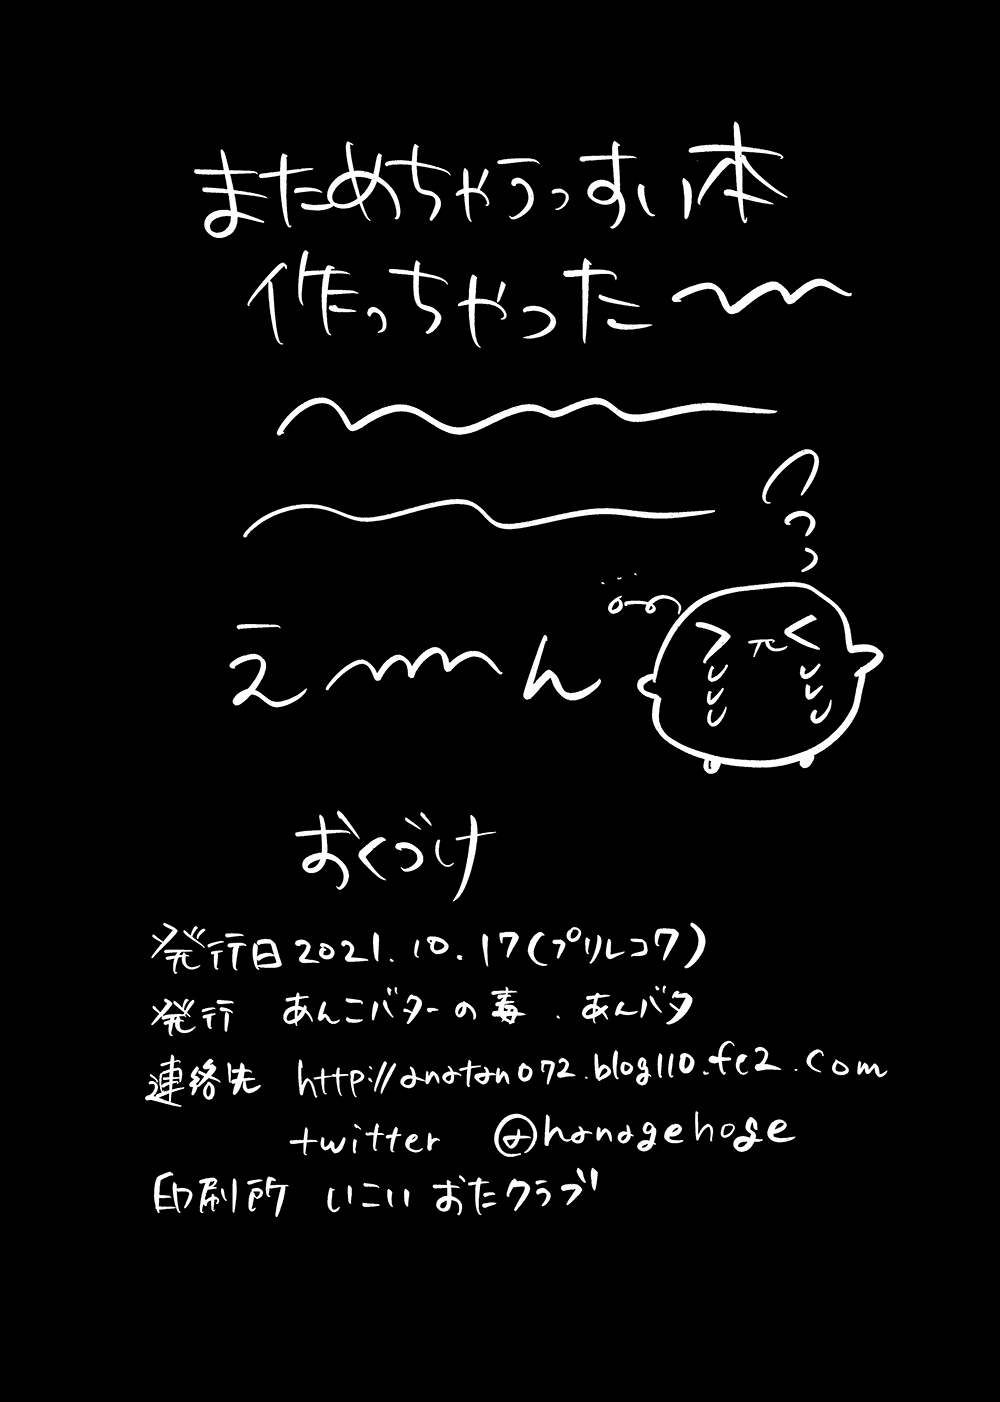 まためちゃうっすい本
作っちゃった〜〜
え〜〜ん
おくづけ
発行日 2021.10.17(プリレコ7)
発行 あんこバターの毒 . あんバタ
連絡先 http://anatan072.blog110.fc2.com
twitter @hanagehoge
印刷所 いこい おたクラブ